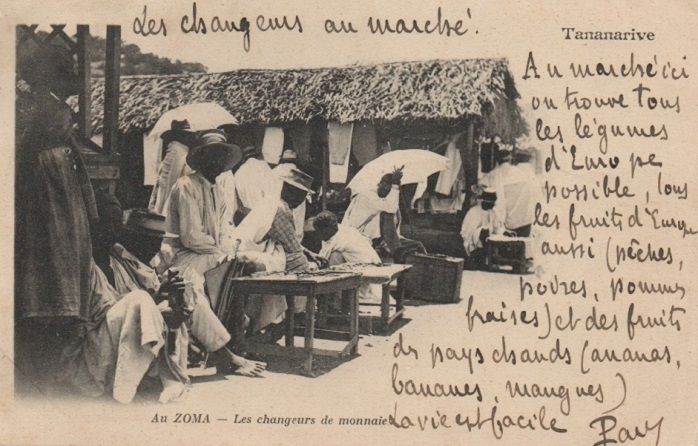 Les changeurs au marché.
Tananarive
Au marché ici
on trouve tous
les légumes
d'Europe
possible, tous
les fruits d'Europe
aussi (pêches,
poires, pommes
fraises) et des fruits
des pays chauds (ananas,
bananes, mangues)
La vie est facile
Au ZOMA — Les changeurs de monnaie